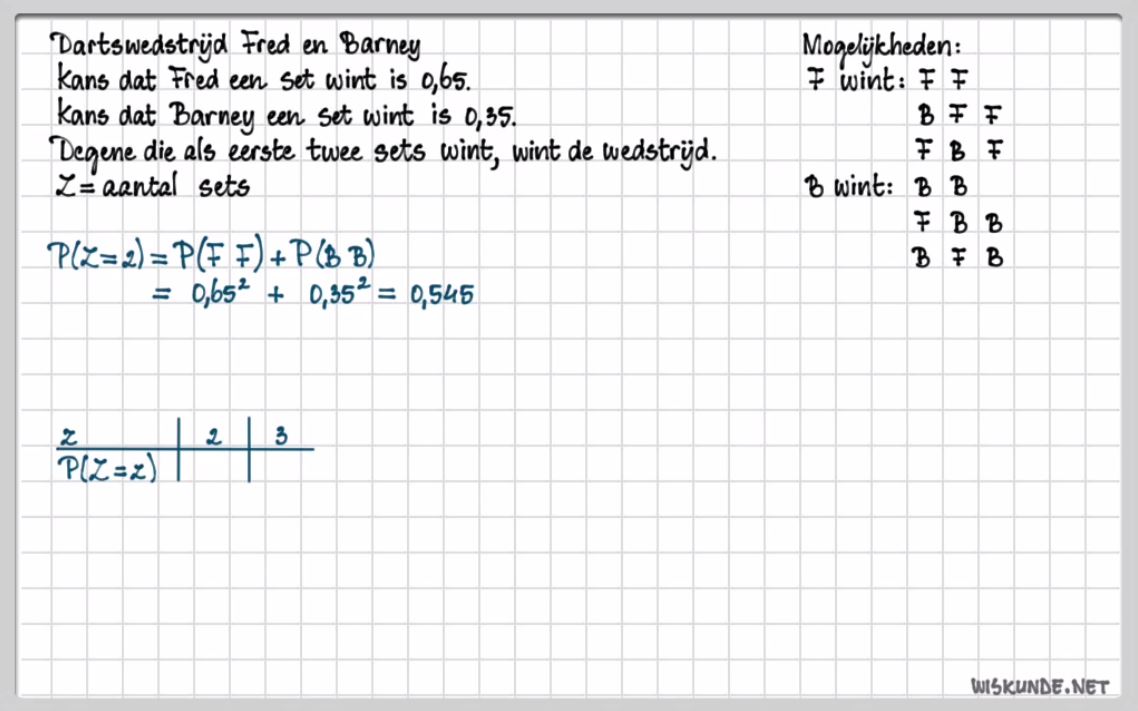 Dartswedstrijd Fred en Barney
Kans dat Fred een set wint is 0,65.
Kans dat Barney een set wint is 0,35.
Degene die als eerste twee sets wint, wint de wedstrijd.
Z = aantal sets
P(Z=2) = P(F F) + P(B B)
= 0,65² + 0,35² = 0,545
z 2 3
P(Z=z)
Mogelijkheden:
F wint: F F
B F F
F B F
B wint: B B
F B B
B F B
WISKUNDE.NET